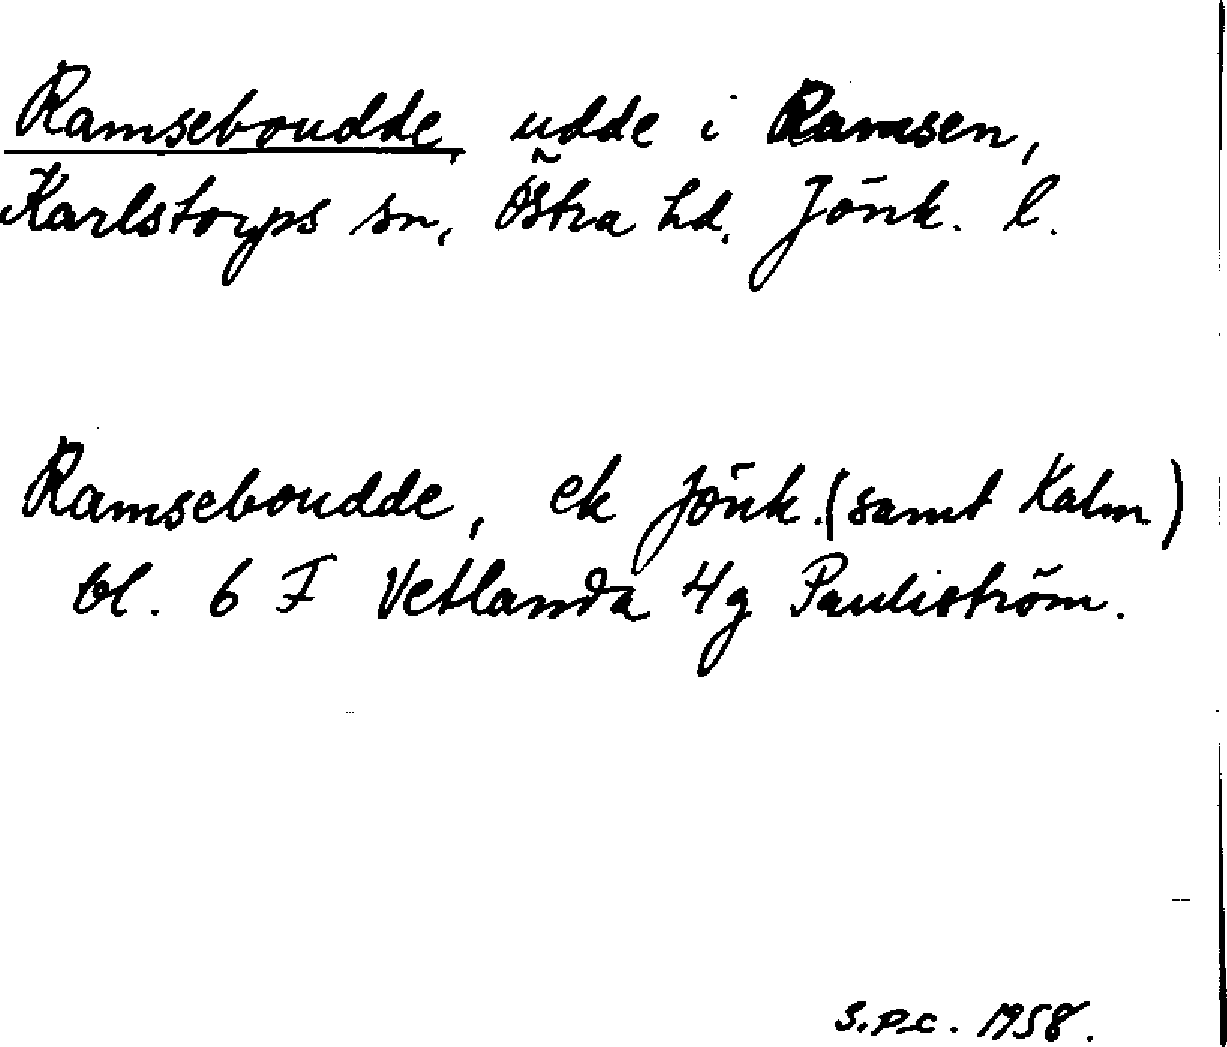 Ramseboudde, udde i Ramsen,
Karlstorps sn, Östra hd. Jönk. l.
Ramseboudde, ek Jönk. (samt Kalm)
bl. 6 F Vetlanda 4g Pauliström.
S.P.C. 1958.